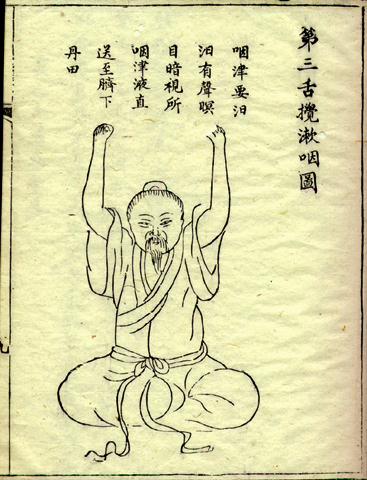 第三舌攪漱咽圖
咽津要汨
汨有聲瞑
目暗視所
咽津液直
送至臍下
丹田